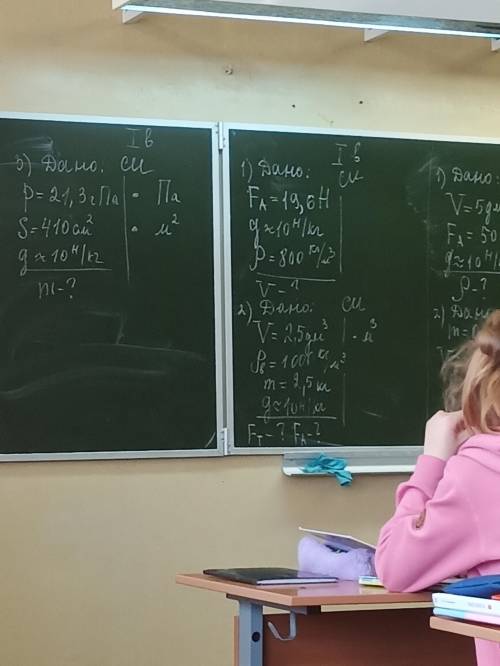 I в
3) Дано: СИ
P = 21,3 гПа • Па
S = 410 см² • м²
g ≈ 10 Н/кг
m - ?
I в
1) Дано: СИ
F_A = 19,6 Н
g ≈ 10 Н/кг
ρ = 800 кг/м³
V - ?
2) Дано: СИ
V = 2,5 дм³ • м³
ρ_в = 1000 кг/м³
m = 2,5 кг
g ≈ 10 Н/кг
F_T - ? F_A - ?
1) Дано:
V = 5 дм
F_A = 50
g ≈ 10 Н
ρ - ?
2) Дано